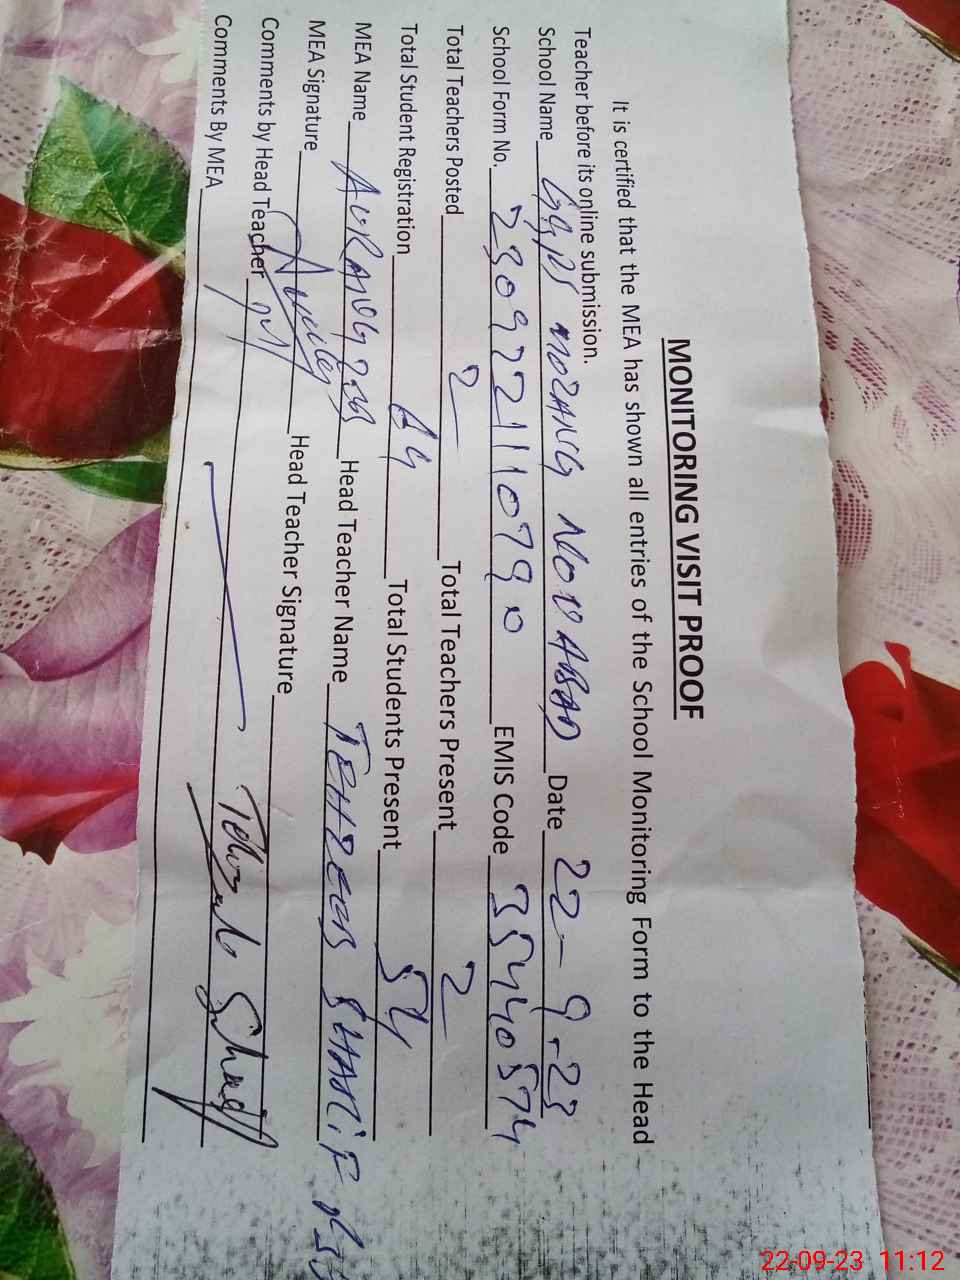 MONITORING VISIT PROOF
It is certified that the MEA has shown all entries of the School Monitoring Form to the Head
Teacher before its online submission.
School Name MOZANG NOWABAD Date 22-9-23
School Form No. 2309221110790 EMIS Code 35440574
Total Teachers Posted 2 Total Teachers Present 2
Total Student Registration Total Students Present 54
MEA Name AURANGZEB Head Teacher Name TEHZEEB SHARIF
MEA Signature Head Teacher Signature
Comments by Head Teacher
Comments By MEA
22-09-23 11:12